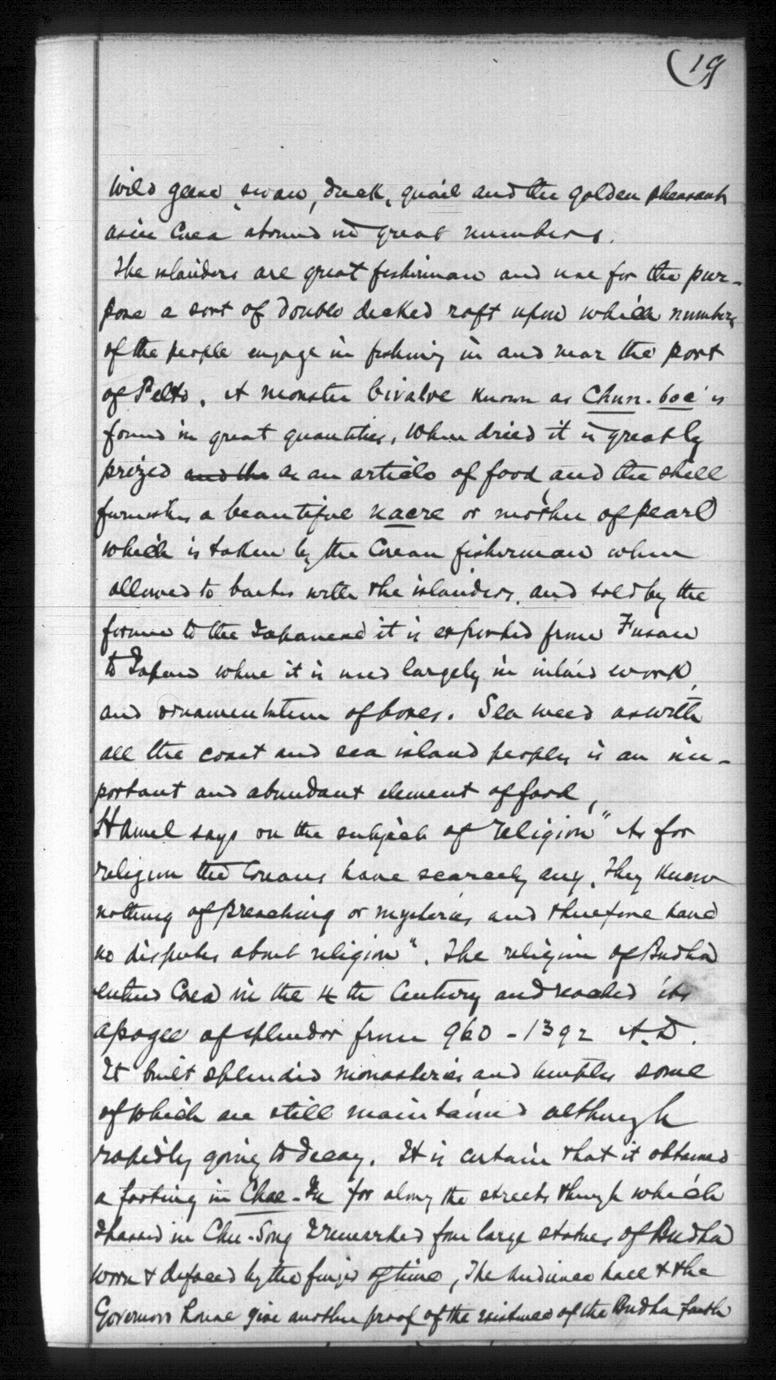 19
Wild geese, swan, duck, quail and the golden pheasant
as in Corea abound in great numbers.
The islanders are great fishermen and use for the pur-
pose a sort of double decked raft upon which numbers
of the people engage in fishing in and near the port
of Pelto. A monster bivalve known as Chun-boc is
found in great quantities, when dried it is greatly
prized and the as an article of food and the shell
furnishes a beautiful nacre or mother of pearl
which is taken by the Corean fisherman when
allowed to barter with the islanders, and sold by the
former to the Japanese it is exported from Fusan
to Japan where it is used largely in inlaid work,
and ornamentation of boxes. Sea weed as with
all the coast and sea island peoples is an im-
portant and abundant element of food,
Hamel says on the subject of religion "As for
religion the Coreans have scarcely any. They know
nothing of preaching or mysteries and therefore have
no disputes about religion". The religion of Budha
entered Corea in the 4th Century and reached its
apogee of splendor from 960 - 1392 A.D.
It built splendid monasteries and temples some
of which are still maintained although
rapidly going to decay. It is certain that it obtained
a footing in Chae-Ju for along the streets through which
I passed in Chu-Song I remarked four large statues of Budha
worn & defaced by the finger of time, The Audience hall & the
Governors house give another proof of the existence of the Budha faith